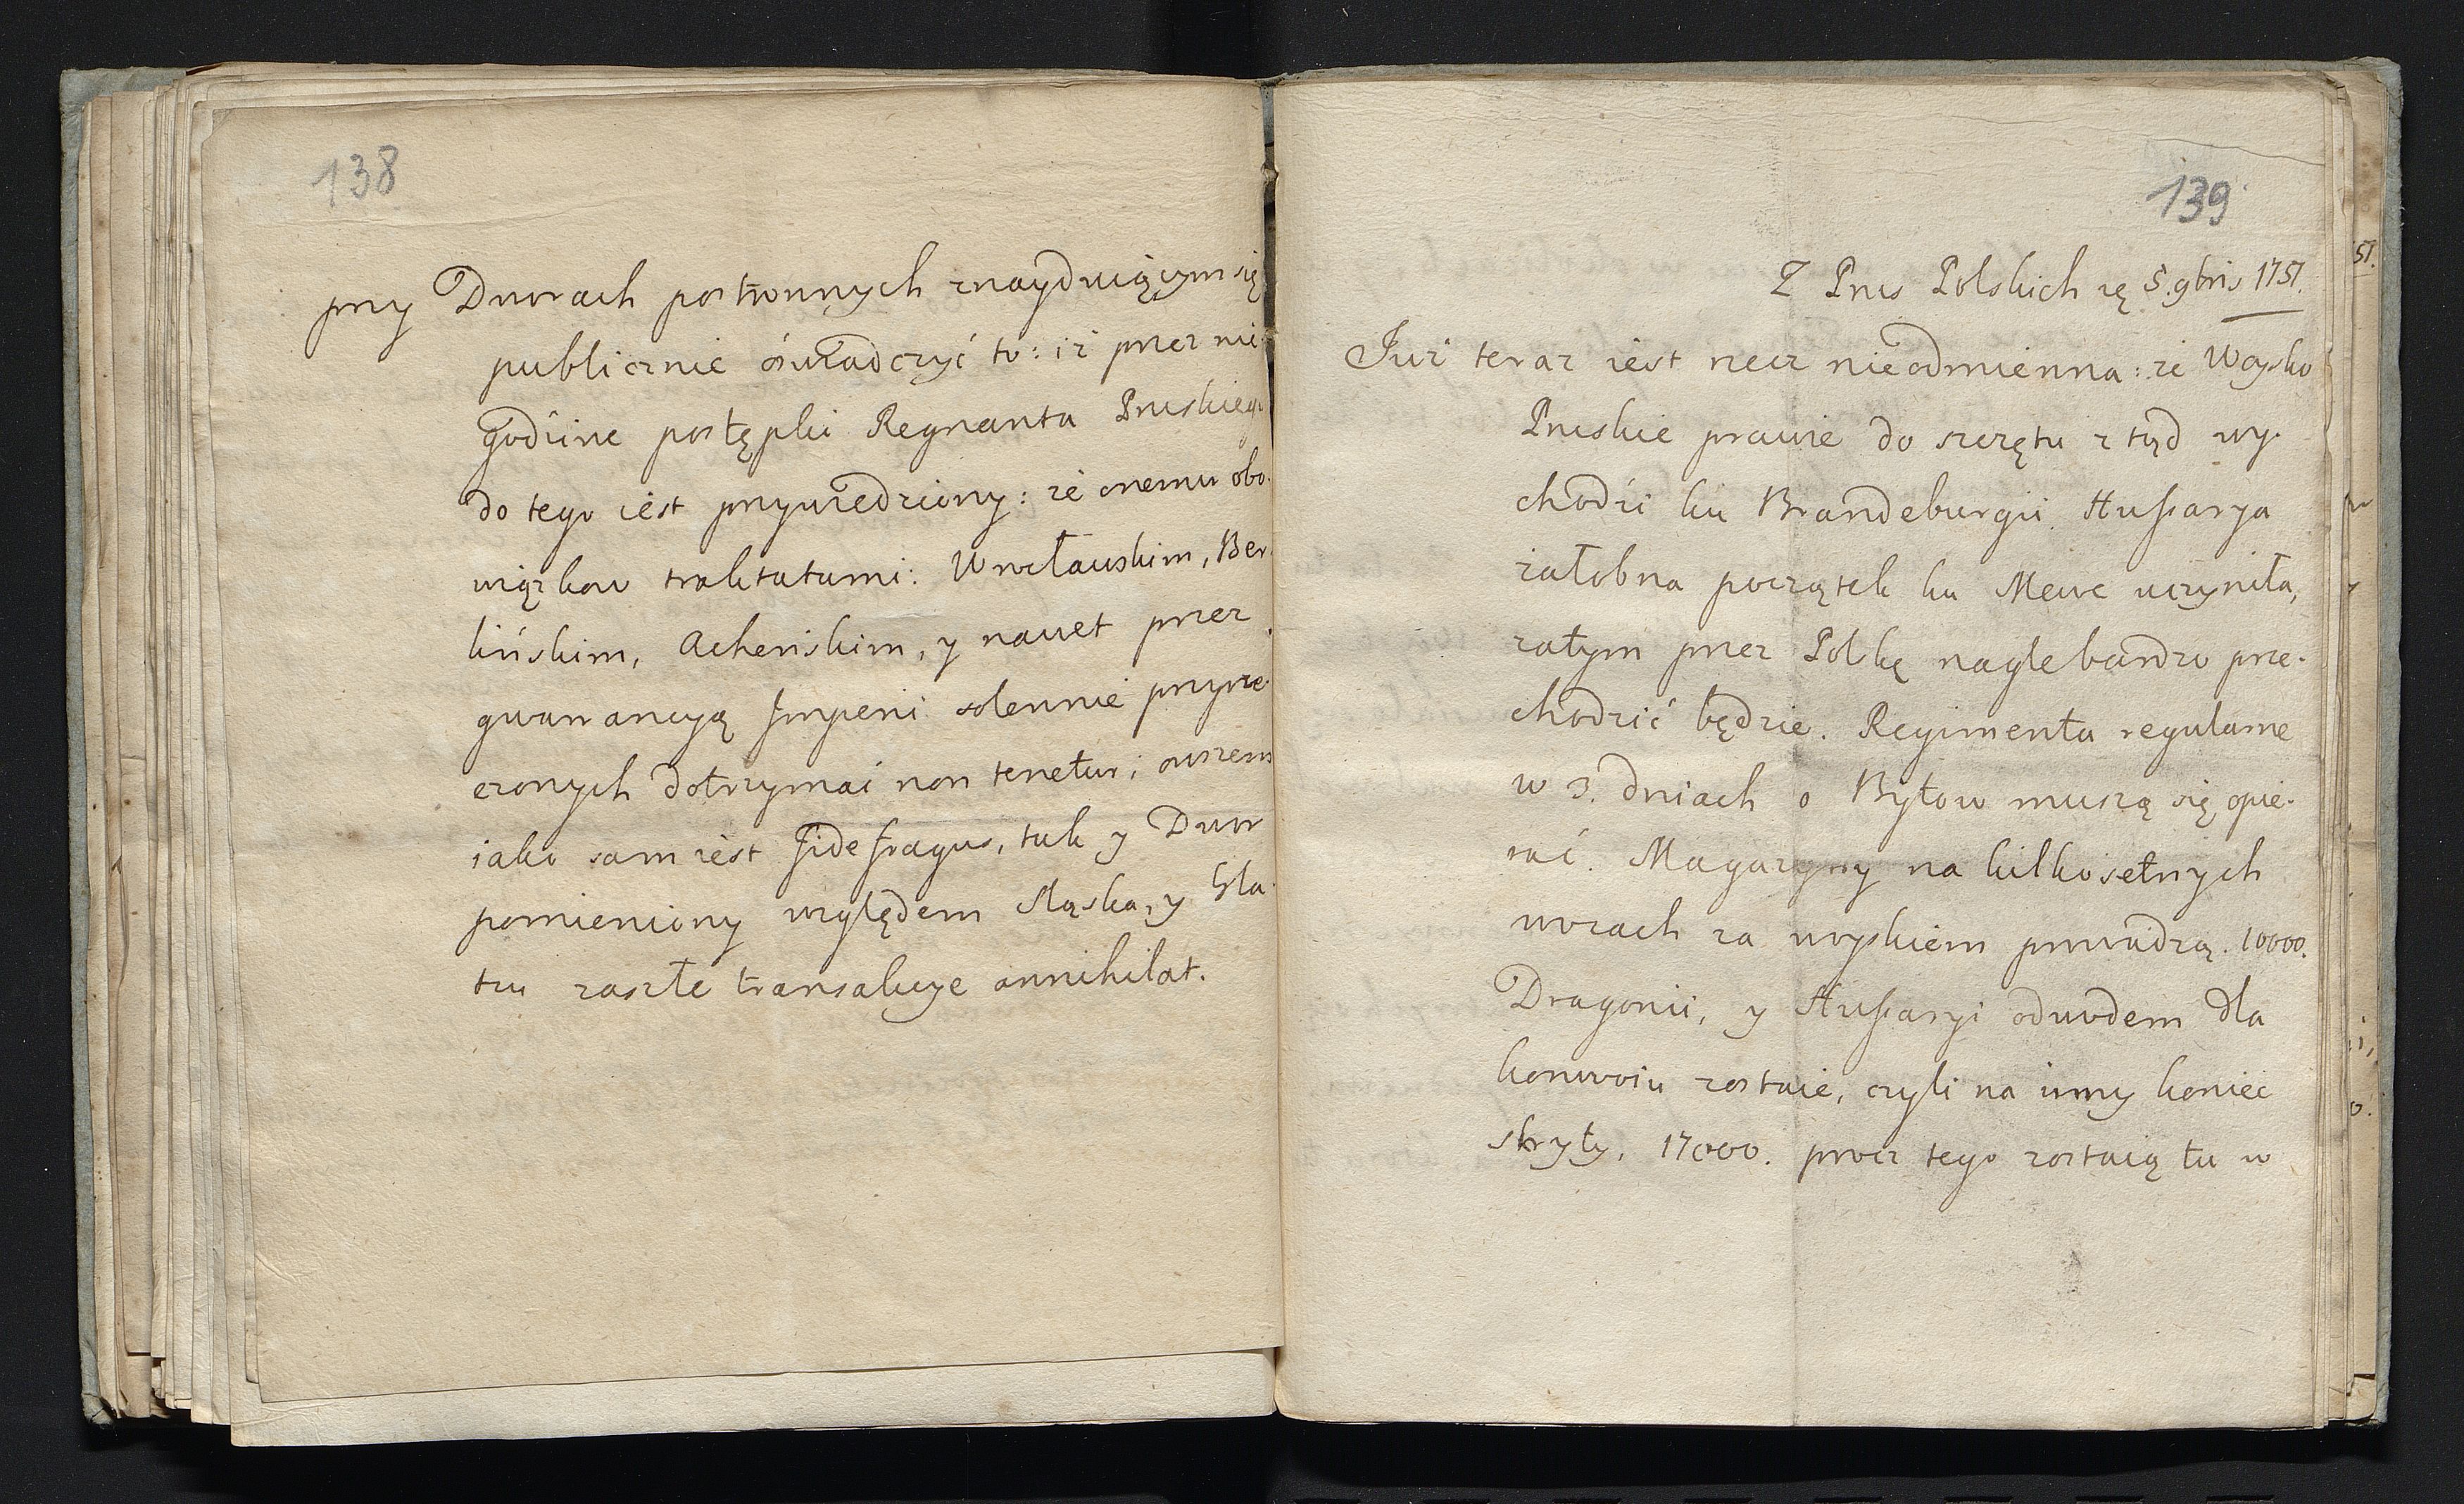 138
przy Dworach postronnych znayduiącym się
publicznie oświadczyć to: iż przez nie
godźiwe postępki Regnanta Pruskiego
do tego iest przywiedziony: że onemu obo-
wiązkow traktatami: Wrocławskim, Ber-
lińskim, Acheńskim, y nawet przez
gwarancyą Imperii solennie przyrze-
czonych dotrzymać non tenetur; owszem
iako sam iest fidefragus, tak y Dwor
pomieniony względem Sląska, y Gla-
tzu zaszłe transakcye annihilat.
139
Z Prus Polskich 5. 9bris 1757.
Już teraz iest rzecz nieodmienna: że Woysko
Pruskie prawie do szczętu z tąd wy-
chodźi ku Brandeburgii. Hussarya
żałobna początek ku Mewe uczyniła,
zatym przez Polskę nagle bardzo prze-
chodzić będzie. Regimenta regularne
w 3. dniach o Bytow muszą się opie-
rać. Magazyny na kilkosetnych
wozach za woyskiem prowadzą. 10000.
Dragonii, y Hussaryi odwodem dla
konwoiu zostaie, czyli na inny koniec
skryty. 17000. procz tego zostaią tu w
51.